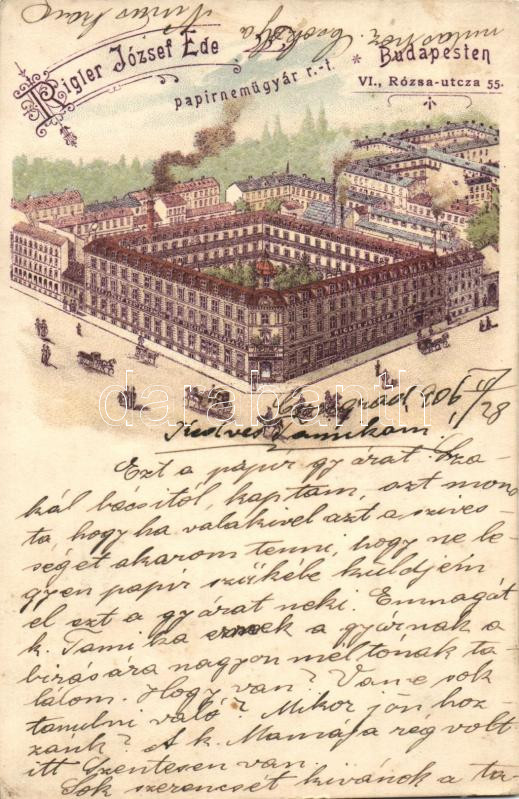 Rigler József Ede
papirnemügyár r.-t. * Budapesten
VI., Rózsa-utcza 55.
Csongrád, 906 VI/28
Kedves Tamikám!
Ezt a papír gyárat Sza-
kál bácsitól kaptam, azt mond
ta, hogy ha valakivel azt a szives-
séget akarom tenni, hogy ne le-
gyen papír szűkébe küldjem
el ezt a gyárat neki. Emmagát
k. Tamika ennek a gyárnak a
birására nagyon méltónak ta-
lálom. Hogy van? Van-e sok
tanulni való? Mikor jön hoz-
zánk? A k. Mamája rég volt
itt Szentesen van.
Sok szerencsét kivánok a ta-